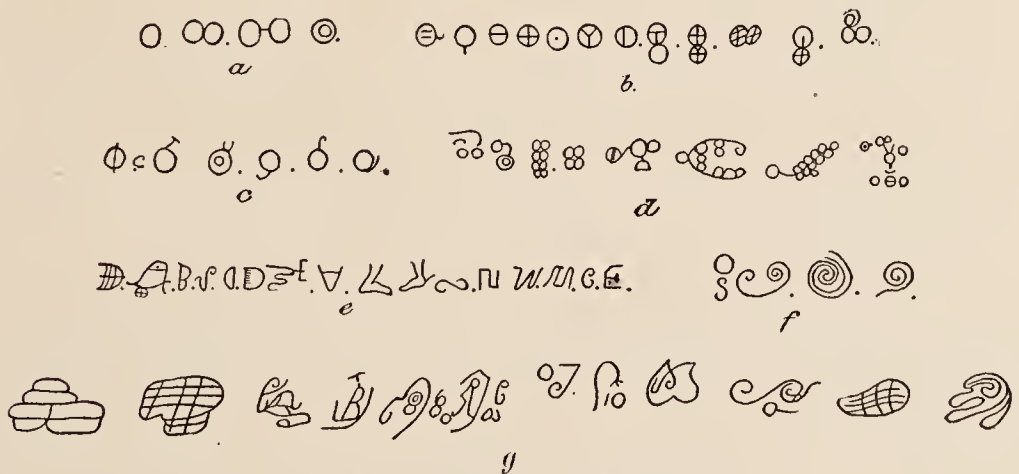 a
b.
c
d
e
f
g